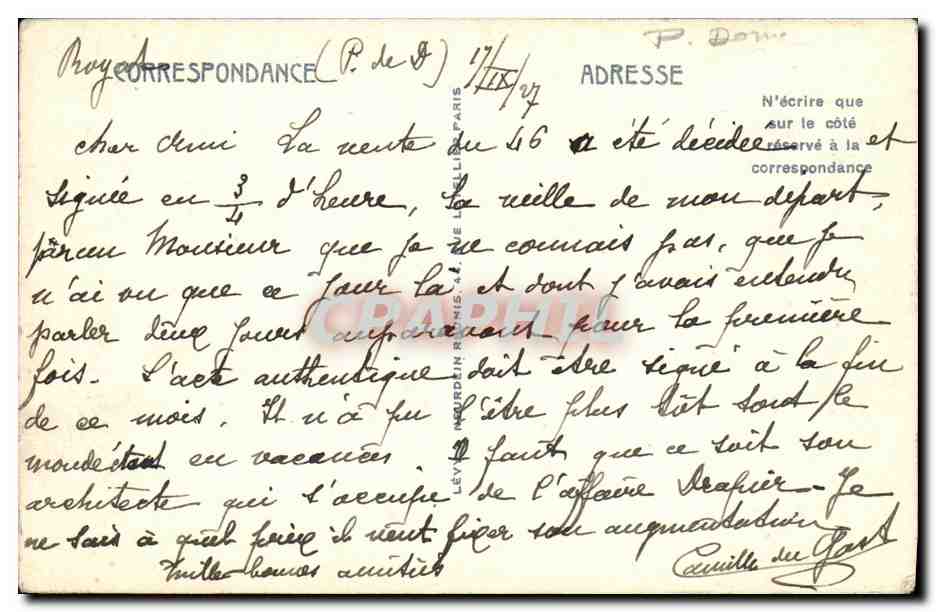 P. Dome
Royat CORRESPONDANCE (P. de D) 17/IX/27 ADRESSE
N'écrire que
sur le côté
réservé à la
correspondance
cher ami La vente du 46 a été décidée et
signée en 3/4 d'heure, la veille de mon départ,
par un Monsieur que je ne connais pas, que je
n'ai vu que ce jour là et dont j'avais entendu
parler deux jours auparavant pour la première
fois. L'acte authentique doit être signé à la fin
de ce mois. Il n'a pu l'être plus tôt tout le
monde étant en vacances. Il faut que ce soit son
architecte qui s'occupe de l'affaire Drapier - Je
ne sais à quel prix il veut fixer son augmentation
Mille bonnes amitiés Camille du Gast
LÉVY NEURDEIN RÉUNIS, 44, RUE LETELLIER, PARIS
CPARAMA